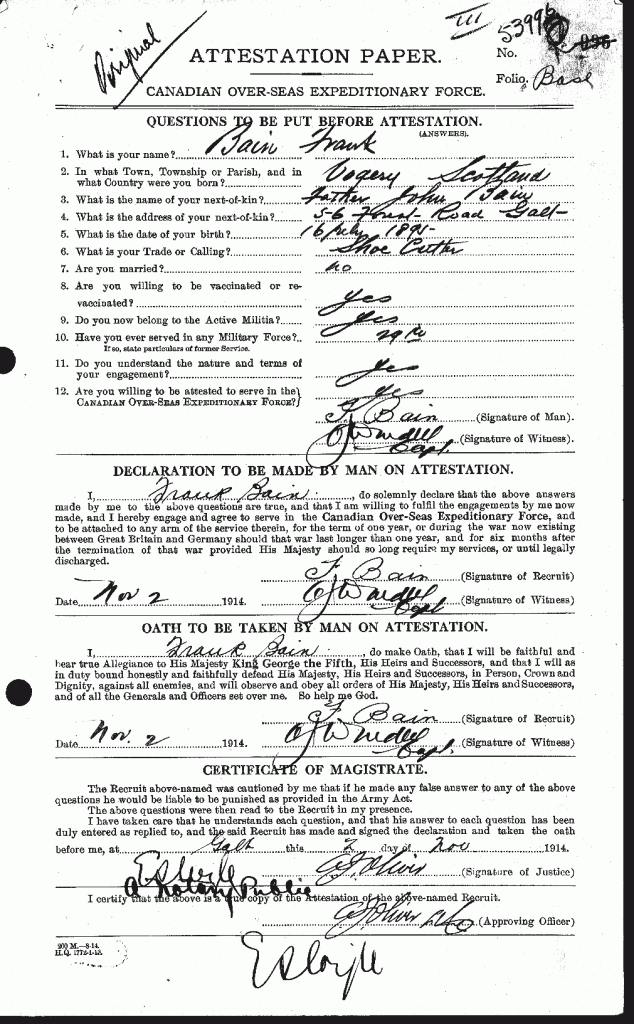 Original
III
53996
ATTESTATION PAPER.
No.
Folio.
CANADIAN OVER-SEAS EXPEDITIONARY FORCE.
QUESTIONS TO BE PUT BEFORE ATTESTATION.
(ANSWERS).
1. What is your name? Bain Frank
2. In what Town, Township or Parish, and in
what Country were you born? Scotland
3. What is the name of your next-of-kin? Father John Bain
4. What is the address of your next-of-kin? 56 Forest Road Galt
5. What is the date of your birth? 16 1891
6. What is your Trade or Calling? Shoe Cutter
7. Are you married? no
8. Are you willing to be vaccinated or re-
vaccinated? Yes
9. Do you now belong to the Active Militia? Yes
10. Have you ever served in any Military Force? 29th
If so, state particulars of former Service.
11. Do you understand the nature and terms of
your engagement? Yes
12. Are you willing to be attested to serve in the
CANADIAN OVER-SEAS EXPEDITIONARY FORCE? Yes
F. Bain (Signature of Man).
Capt. (Signature of Witness).
DECLARATION TO BE MADE BY MAN ON ATTESTATION.
I, Frank Bain, do solemnly declare that the above answers
made by me to the above questions are true, and that I am willing to fulfil the engagements by me now
made, and I hereby engage and agree to serve in the Canadian Over-Seas Expeditionary Force, and
to be attached to any arm of the service therein, for the term of one year, or during the war now existing
between Great Britain and Germany should that war last longer than one year, and for six months after
the termination of that war provided His Majesty should so long require my services, or until legally
discharged.
F. Bain (Signature of Recruit)
Date Nov 2 1914. Capt (Signature of Witness)
OATH TO BE TAKEN BY MAN ON ATTESTATION.
I, Frank Bain, do make Oath, that I will be faithful and
bear true Allegiance to His Majesty King George the Fifth, His Heirs and Successors, and that I will as
in duty bound honestly and faithfully defend His Majesty, His Heirs and Successors, in Person, Crown and
Dignity, against all enemies, and will observe and obey all orders of His Majesty, His Heirs and Successors,
and of all the Generals and Officers set over me. So help me God.
F. Bain (Signature of Recruit)
Date Nov. 2 1914. Capt. (Signature of Witness)
CERTIFICATE OF MAGISTRATE.
The Recruit above-named was cautioned by me that if he made any false answer to any of the above
questions he would be liable to be punished as provided in the Army Act.
The above questions were then read to the Recruit in my presence.
I have taken care that he understands each question, and that his answer to each question has been
duly entered as replied to, and the said Recruit has made and signed the declaration and taken the oath
before me, at Galt this 2 day of Nov 1914.
Oliver (Signature of Justice)
A Notary Public
I certify that the above is a true copy of the Attestation of the above-named Recruit.
Oliver (Approving Officer)
200 M.—8-14.
H.Q. 1772-1-13.